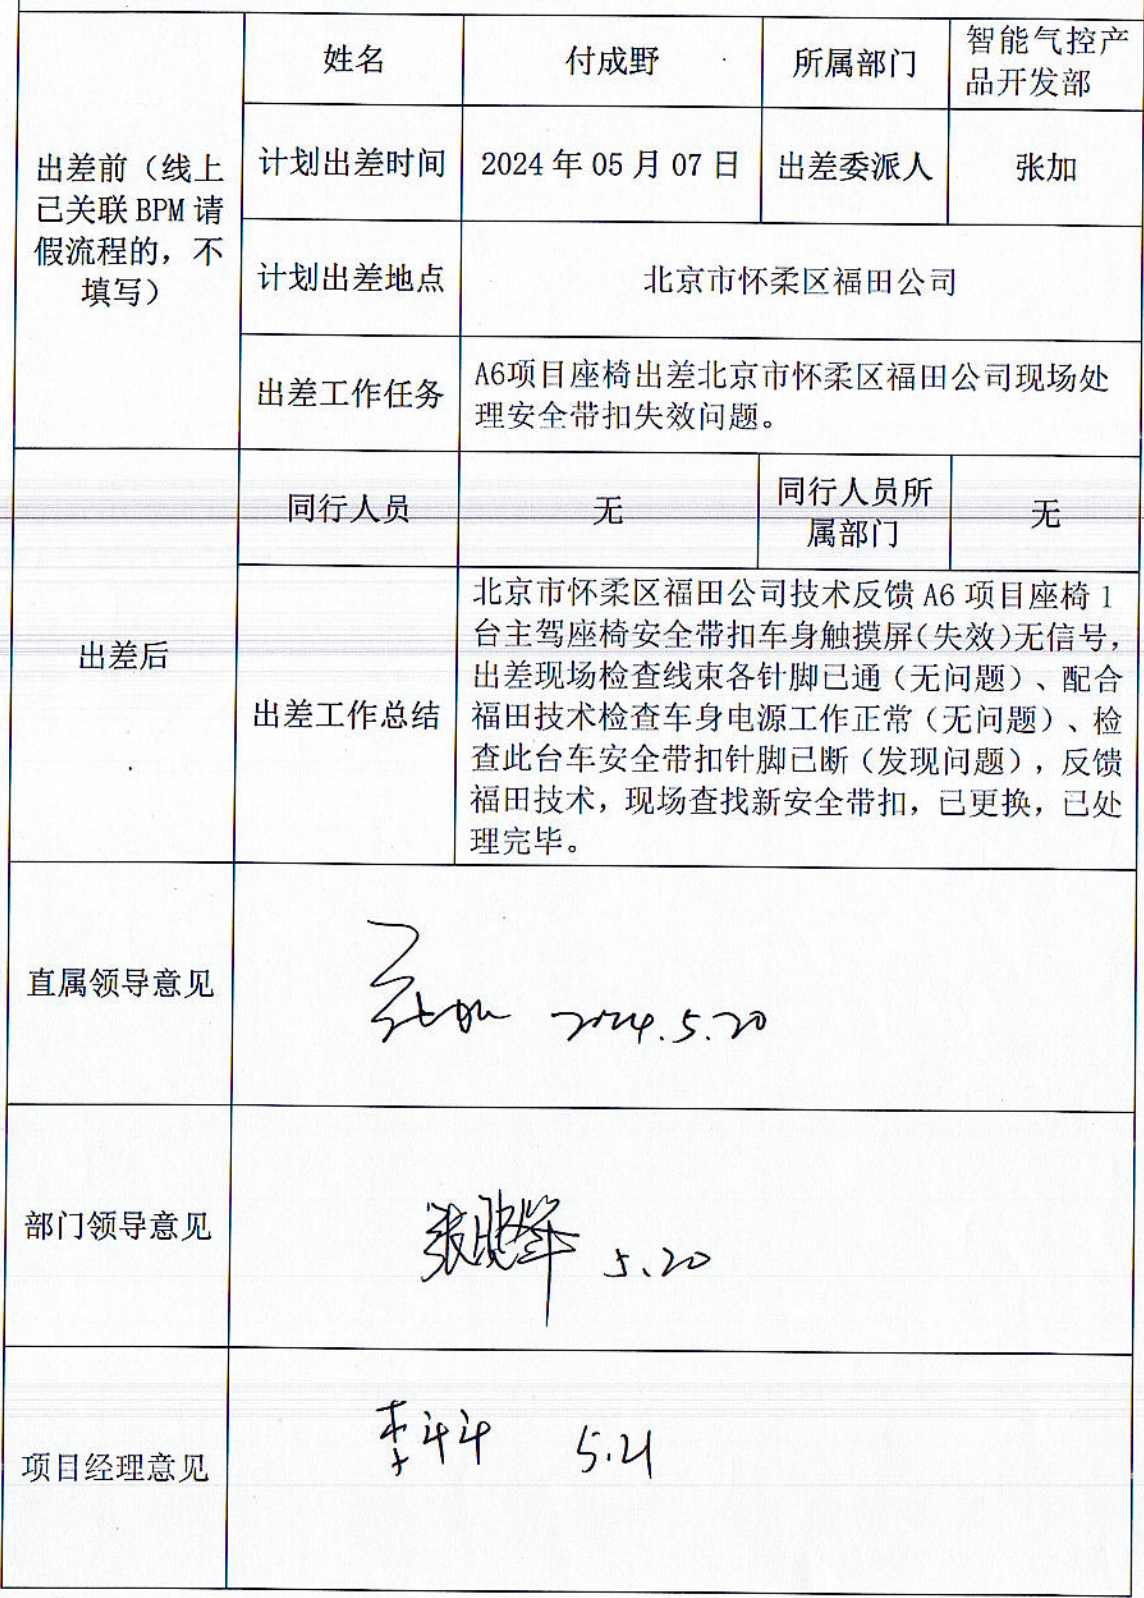 姓名
付成野
所属部门
智能气控产
品开发部
出差前（线上
已关联 BPM 请
假流程的，不
填写）
计划出差时间
2024 年 05 月 07 日
出差委派人
张加
计划出差地点
北京市怀柔区福田公司
出差工作任务
A6项目座椅出差北京市怀柔区福田公司现场处
理安全带扣失效问题。
出差后
同行人员
无
同行人员所
属部门
无
出差工作总结
北京市怀柔区福田公司技术反馈 A6 项目座椅 1
台主驾座椅安全带扣车身触摸屏(失效)无信号，
出差现场检查线束各针脚已通（无问题）、配合
福田技术检查车身电源工作正常（无问题）、检
查此台车安全带扣针脚已断（发现问题），反馈
福田技术，现场查找新安全带扣，已更换，已处
理完毕。
直属领导意见
张加 2024.5.20
部门领导意见
5.20
项目经理意见
李斗斗 5.21